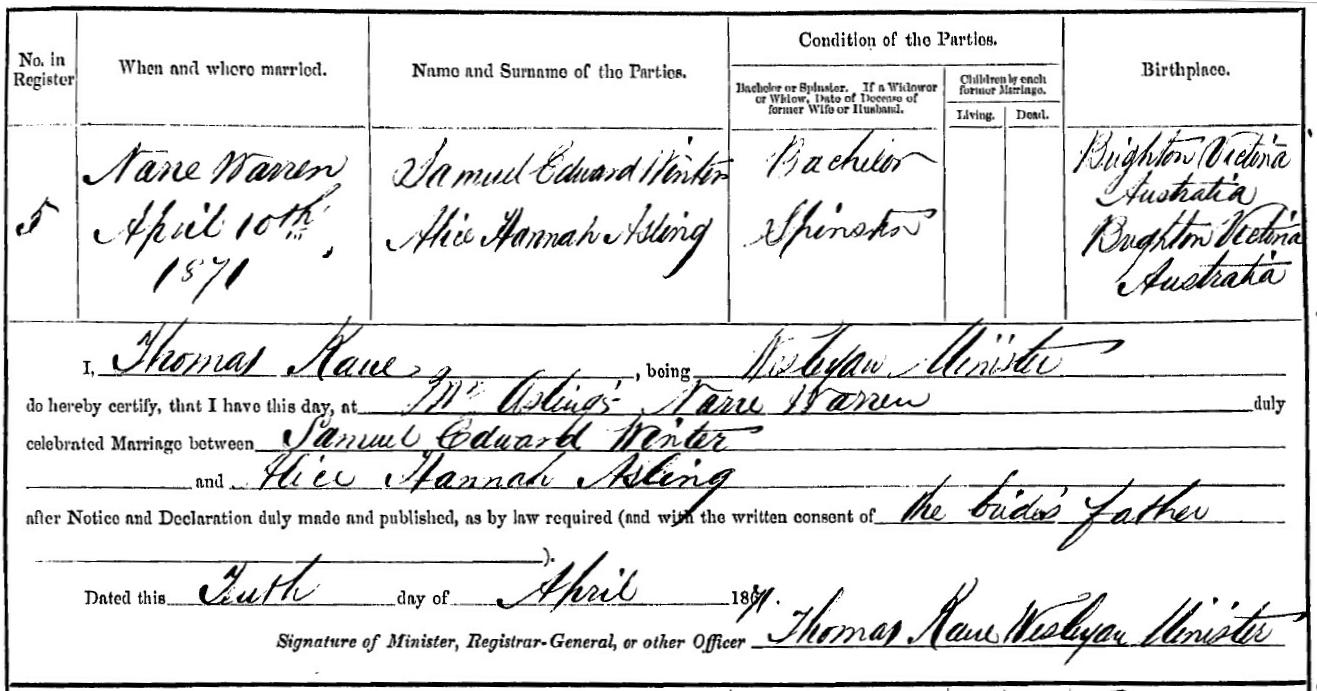 No. in Register
When and where married.
Name and Surname of the Parties.
Condition of the Parties.
Bachelor or Spinster. If a Widower or Widow, Date of Decease of former Wife or Husband.
Children by each former Marriage.
Living.
Dead.
Birthplace.
5
Narre Warren
April 10th,
1871
Samuel Edward Winter
Alice Hannah Asling
Bachelor
Spinster
Brighton Victoria
Australia
Brighton Victoria
Australia
I, Thomas Kane, being Wesleyan Minister
do hereby certify, that I have this day, at Mr Asling's Narre Warren duly
celebrated Marriage between Samuel Edward Winter
and Alice Hannah Asling
after Notice and Declaration duly made and published, as by law required (and with the written consent of the bride's father
).
Dated this Tenth day of April 1871.
Signature of Minister, Registrar-General, or other Officer Thomas Kane Wesleyan Minister